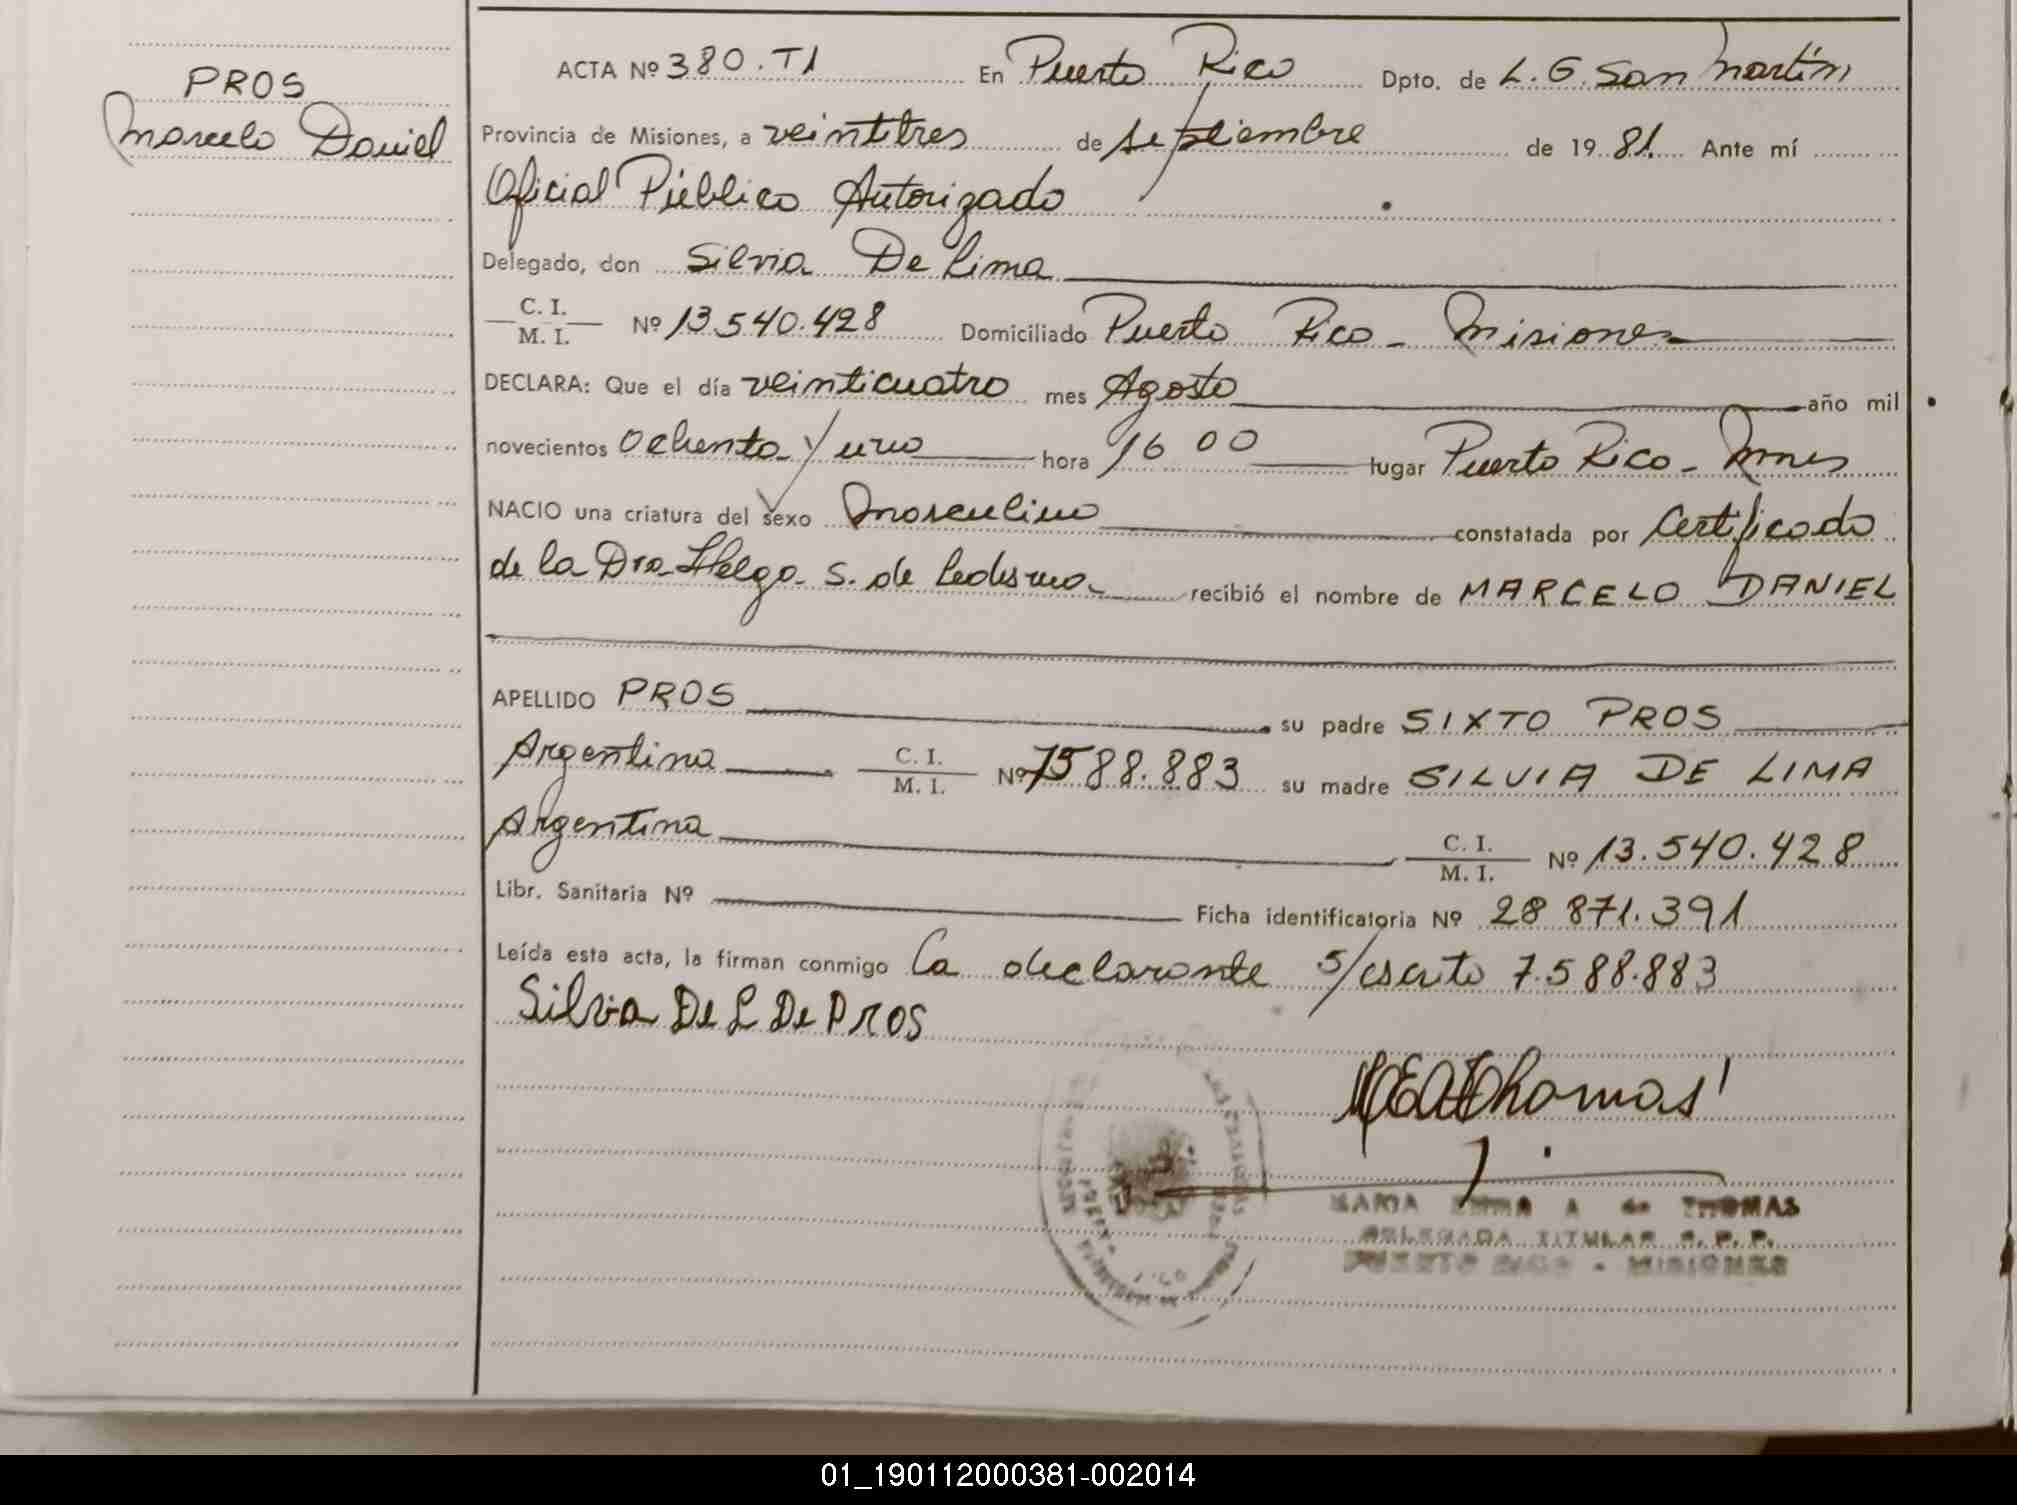 PROS
Marcelo Daniel
ACTA Nº 380.T1 En Puerto Rico Dpto. de L.G. San Martín
Provincia de Misiones, a veintitres de septiembre de 1981. Ante mí
Oficial Público Autorizado
Delegado, don Silvia De Lima
C. I.
M. I. Nº 13.540.428 Domiciliado Puerto Rico - Misiones
DECLARA: Que el día veinticuatro mes Agosto año mil
novecientos ochenta y uno hora 16 00 lugar Puerto Rico - Mnes
NACIO una criatura del sexo masculino constatada por Certificado
de la Dra. Helga S. de Ledesma recibió el nombre de MARCELO DANIEL
APELLIDO PROS su padre SIXTO PROS
Argentina C. I.
M. I. Nº 7588.883 su madre SILVIA DE LIMA
Argentina C. I.
M. I. Nº 13.540.428
Libr. Sanitaria Nº Ficha identificatoria Nº 28 871.391
Leída esta acta, la firman conmigo La declarante s/escrito 7.588.883
Silvia De L De PROS
Thomas
MARIA EMMA A de THOMAS
DELEGADA TITULAR R. P. P.
PUERTO RICO - MISIONES
01_190112000381-002014